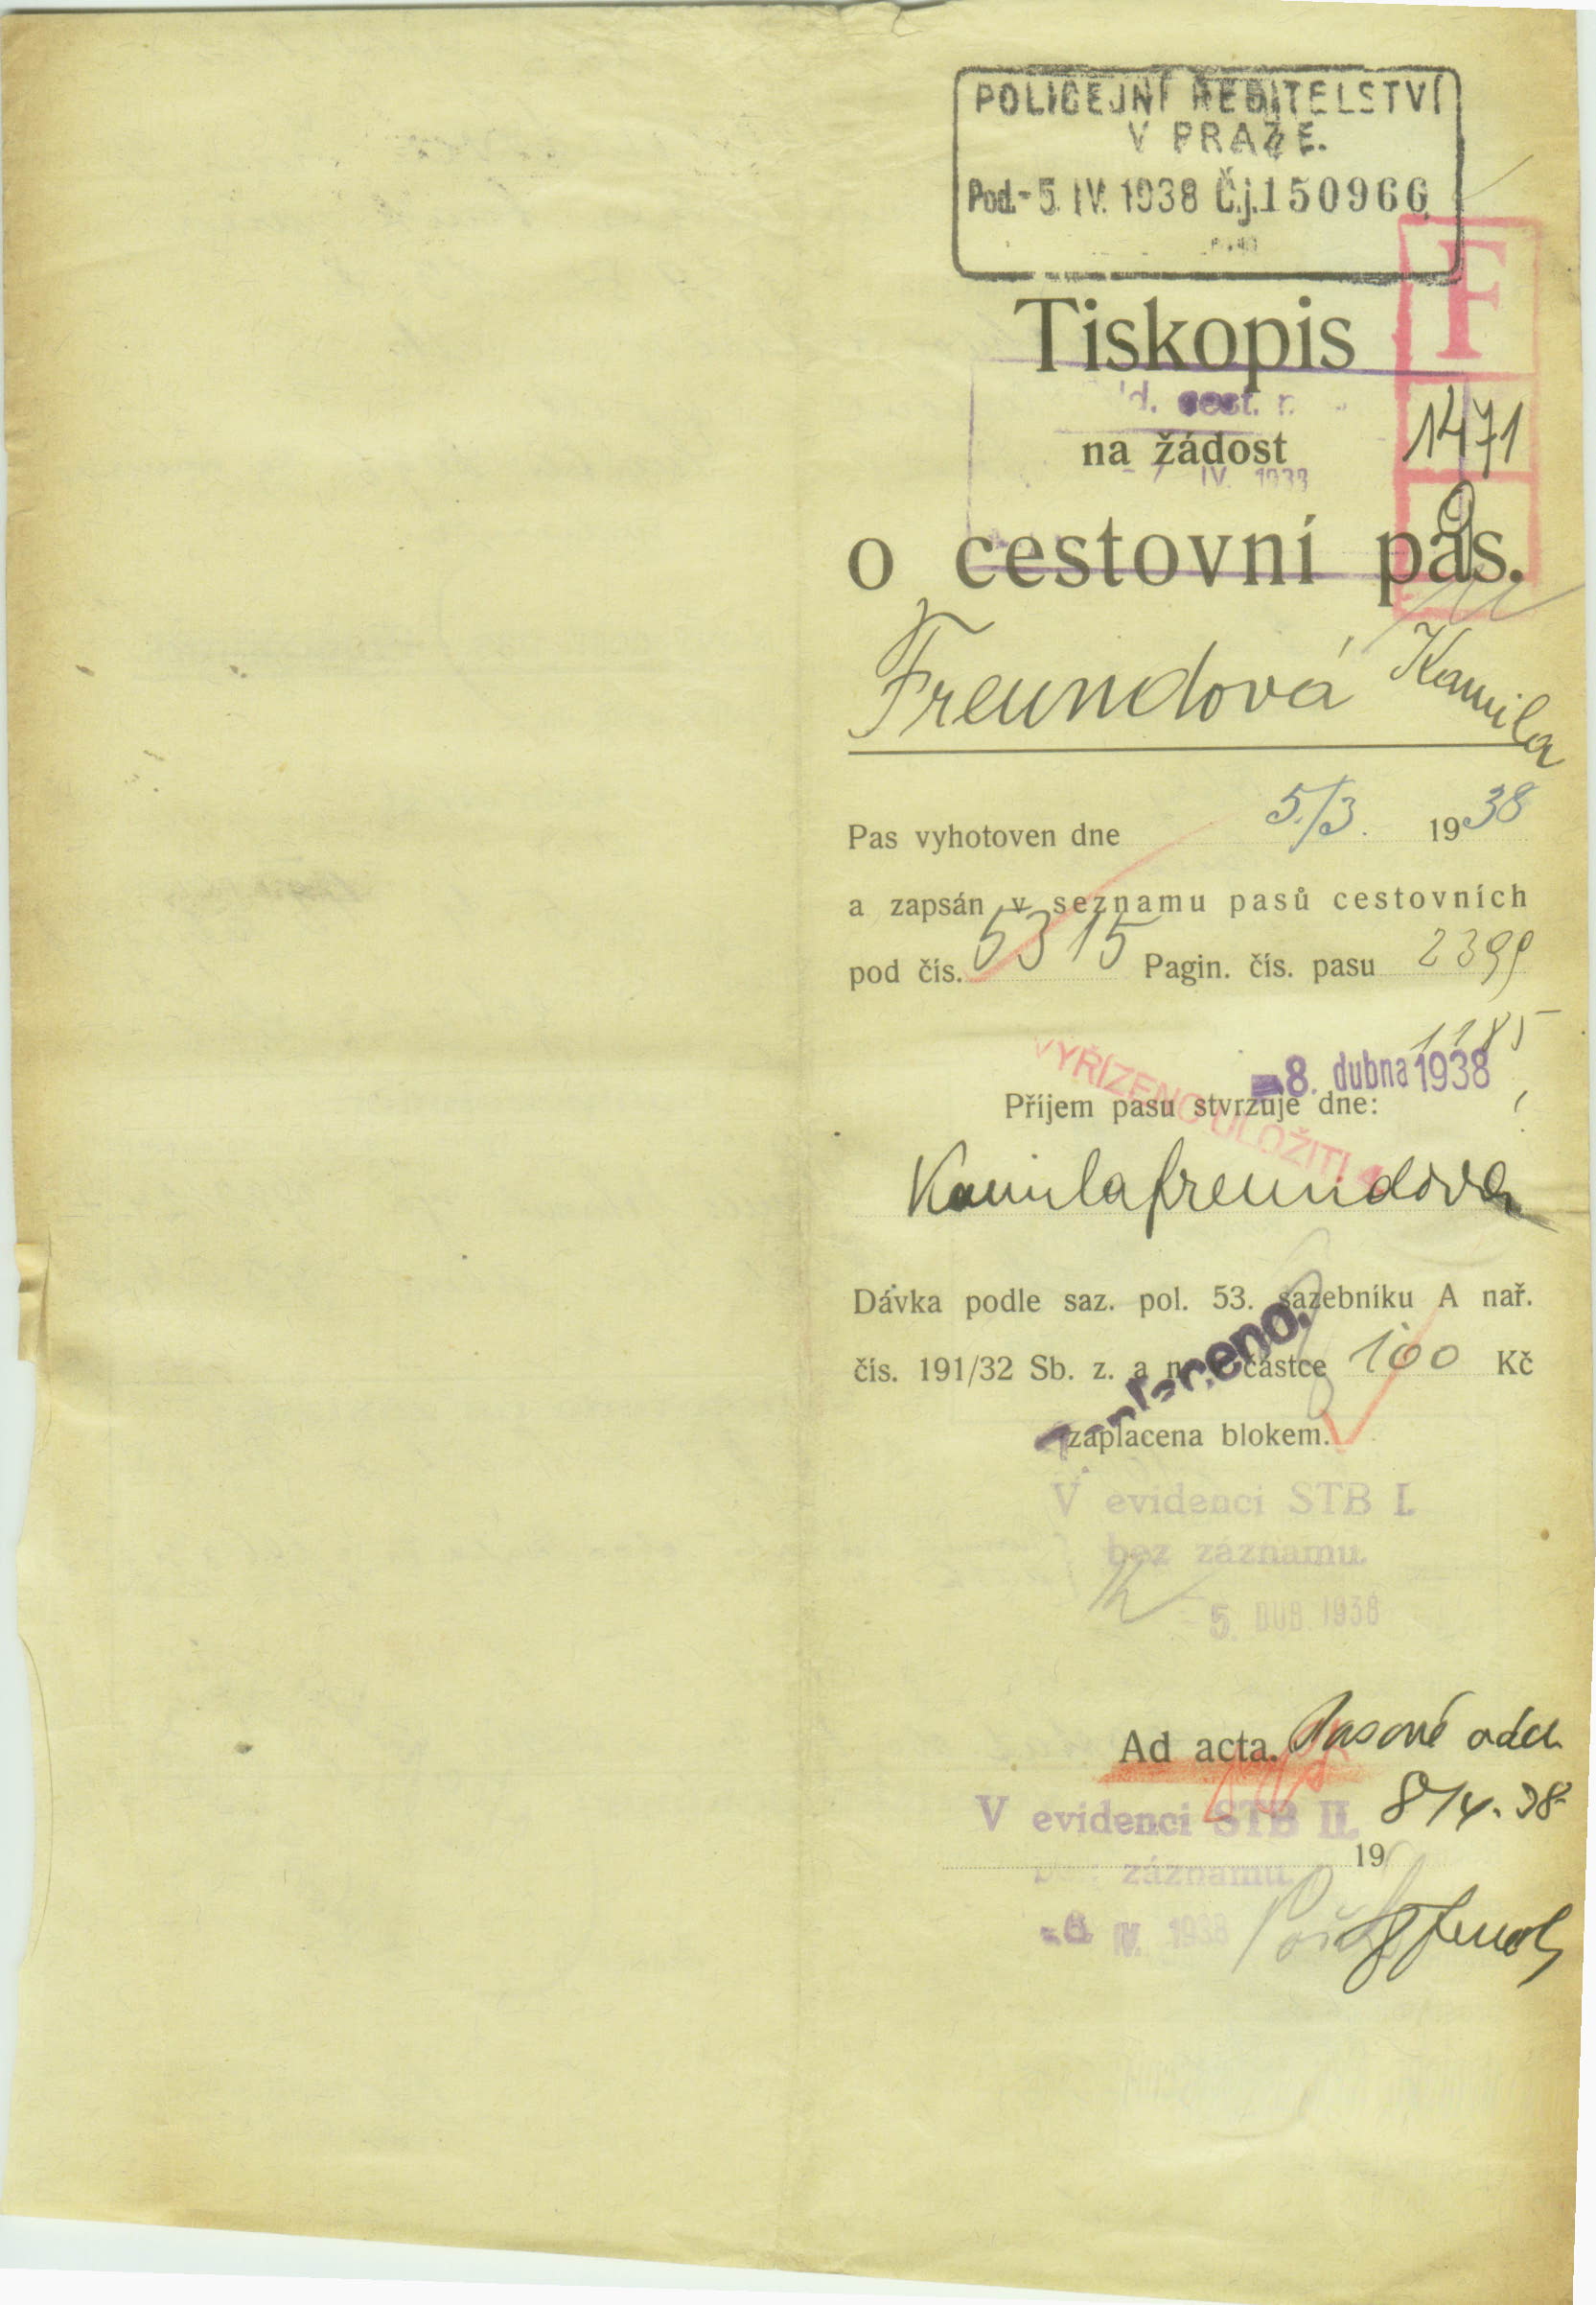 POLICEJNÍ ŘEDITELSTVÍ
V PRAZE.
Pod. - 5. IV. 1938 Č.j. 150960
F
Tiskopis
1471
na žádost
IV. 1938
9
o cestovní pas.
Freundová Kamila
Pas vyhotoven dne 5./3. 1938
a zapsán v seznamu pasů cestovních
pod čís. 5315 Pagin. čís. pasu 2399
1185
-8. dubna 1938
VYŘÍZENO ULOŽITI
Příjem pasu stvrzuje dne:
Kamila Freundova
Dávka podle saz. pol. 53. sazebníku A nař.
čís. 191/32 Sb. z. a n. částce 100 Kč
Zaplaceno.
zaplacena blokem.
V evidenci STB I.
bez záznamu.
5. DUB. 1938
Ad acta. Pasové odd.
8/4. 38
V evidenci STB II.
19
bez záznamu
IV. 1938